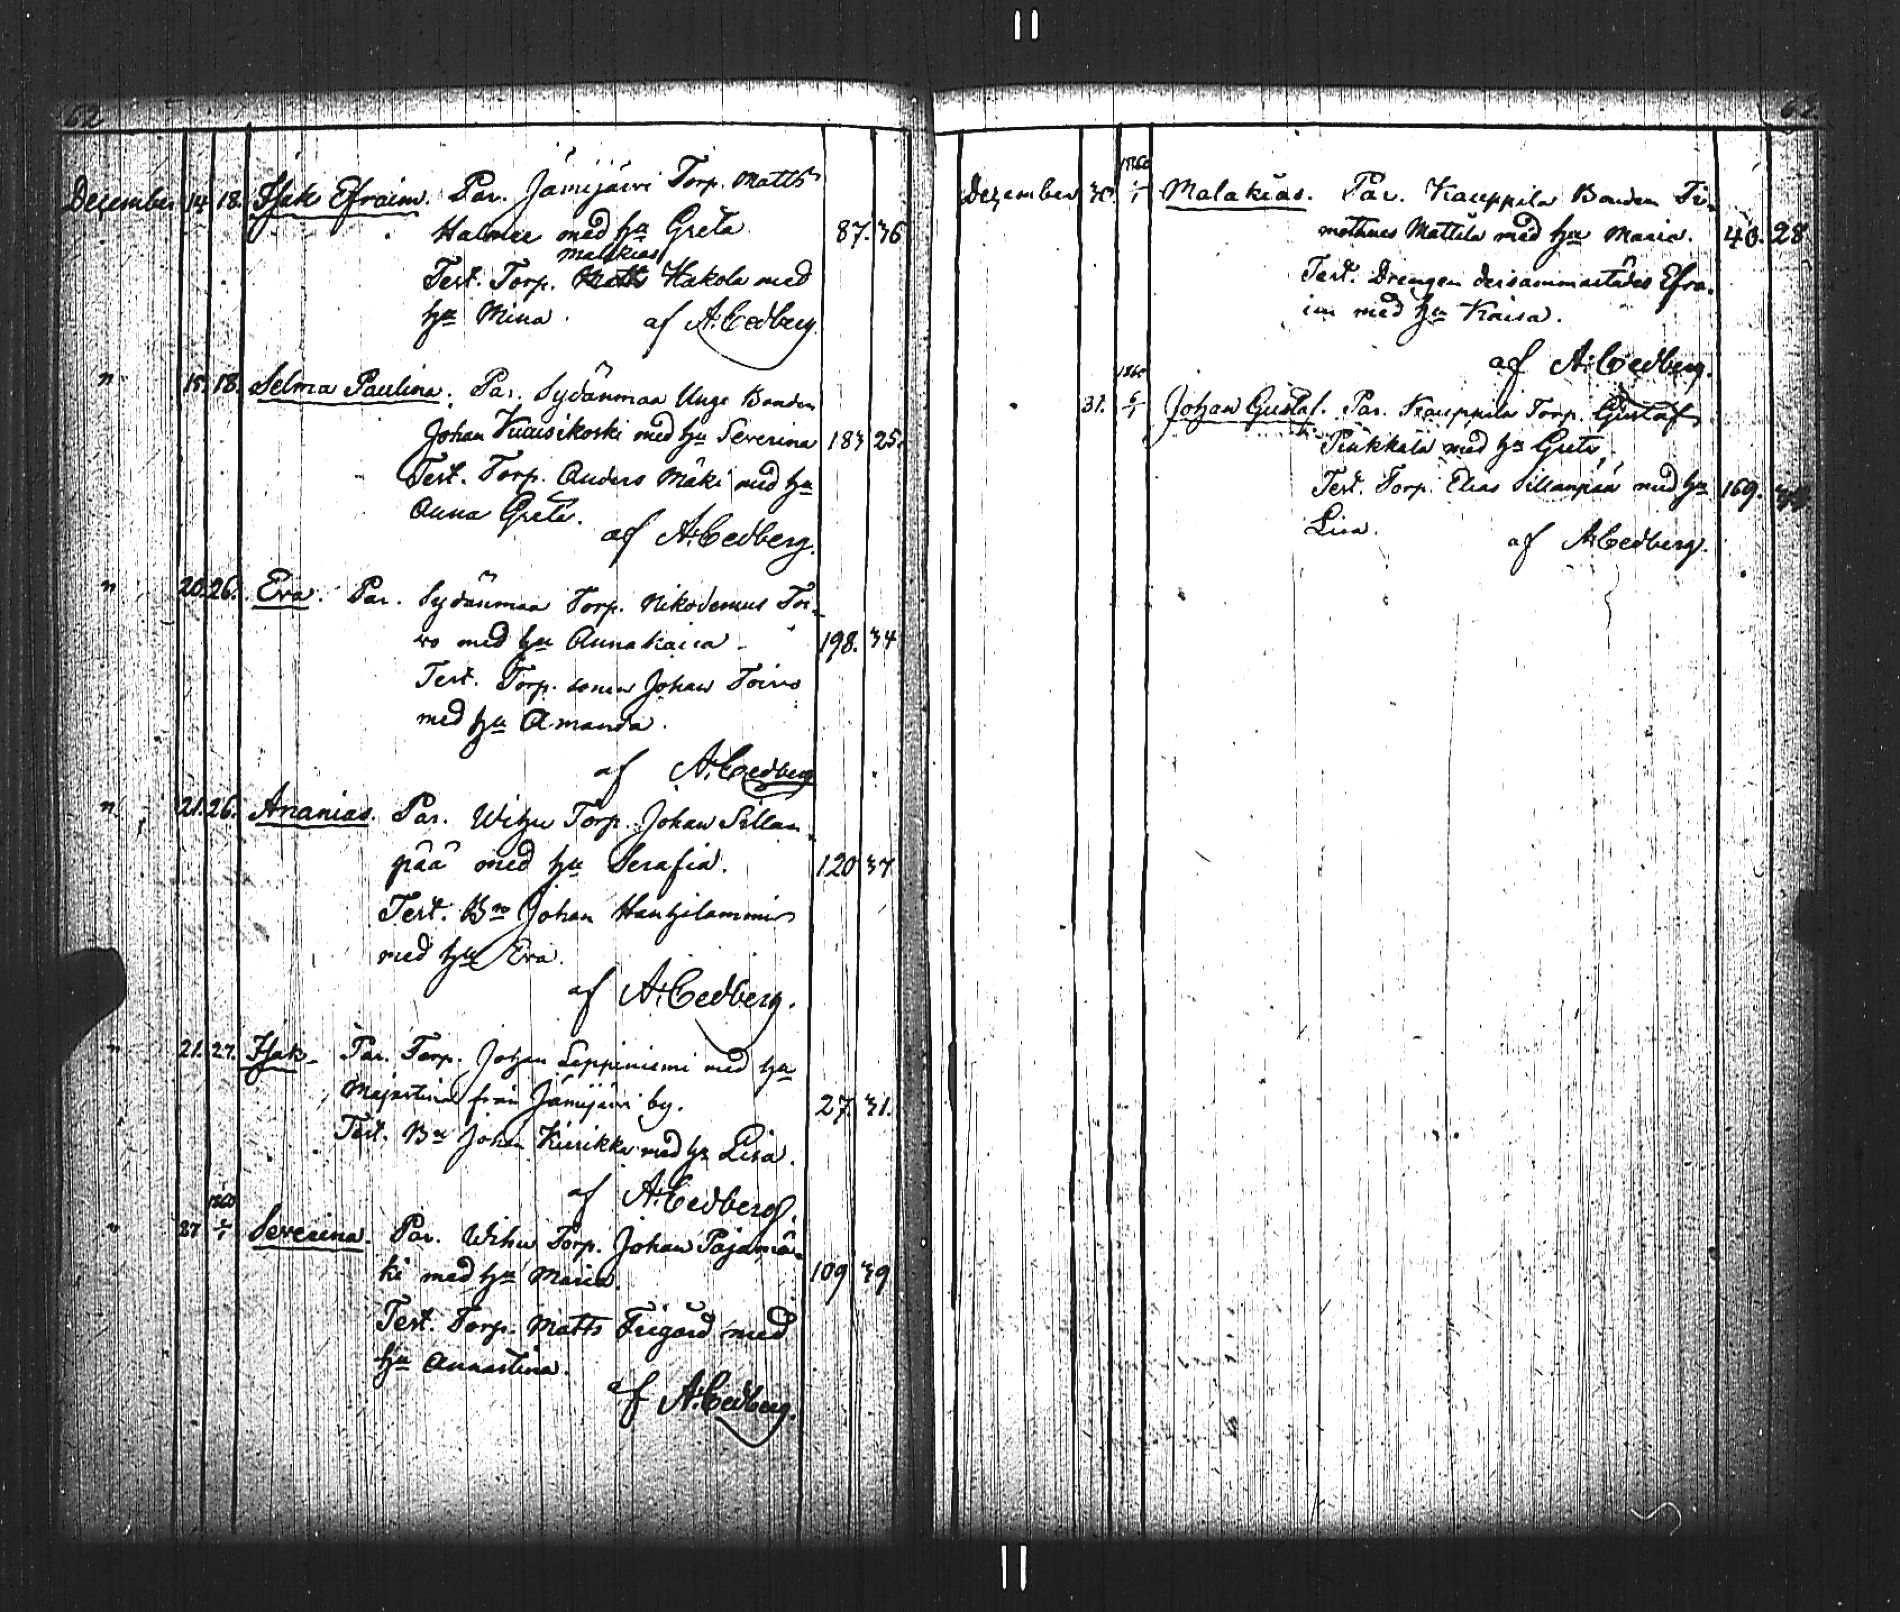 62
December 14 18. Isak Efraim. Par. Jämijärvi Torp. Matts
Halmee med hu Greta 87. 36
Malakias
Test. Torp. Matts Hakola med
hu Mina. af A. Cedberg.
" 15. 18. Selma Paulina. Par. Sydänmaa Unge Bonden
Johan Kuusikoski med hu Severina 183 25.
Test. Torp. Anders Mäki med hu
Anna Greta.
af A. Cedberg.
" 20. 26. Eva. Par. Sydänmaa Torp. Nikodemus Toi-
vo med hu Annakaisa 198. 34
Test. Torp. sonen Johan Toivo
med hu Amanda.
af A. Cedberg
" 21. 26. Ananias. Par. Wihu Torp. Johan Sillan-
pää med hu Serafia. 120 37
Test. Bn Johan Hanhilammi
med hu Eva.
af A. Cedberg.
" 21. 27. Isak. Par. Torp. Johan Leppiniemi med hu
Majastina från Jämijärvi by. 27. 31.
Test. Bn Johan Kiirikka med hu Lisa.
af A. Cedberg.
1860
" 27 1/1 Severina. Par. Wihu Torp. Johan Pajamä-
ki med hu Maria. 109 39
Test. Torp. Matts Frigård med
hu Annastina.
af A. Cedberg.
62.
1860
December 30. 1/1 Malakias. Par. Kauppila Bonden Ti-
motheus Mattila med hu Maria. 40. 28
Test. Drengen dersammastädes Efra-
im med hu Kaisa.
af A. Cedberg.
1860
31. 6/1 Johan Gustaf. Par. Kauppila Torp. Gustaf
Pénkkälä med hu Greta,
Test. Torp. Elias Sillanpää med hu 169.
Lisa. af A. Cedberg.